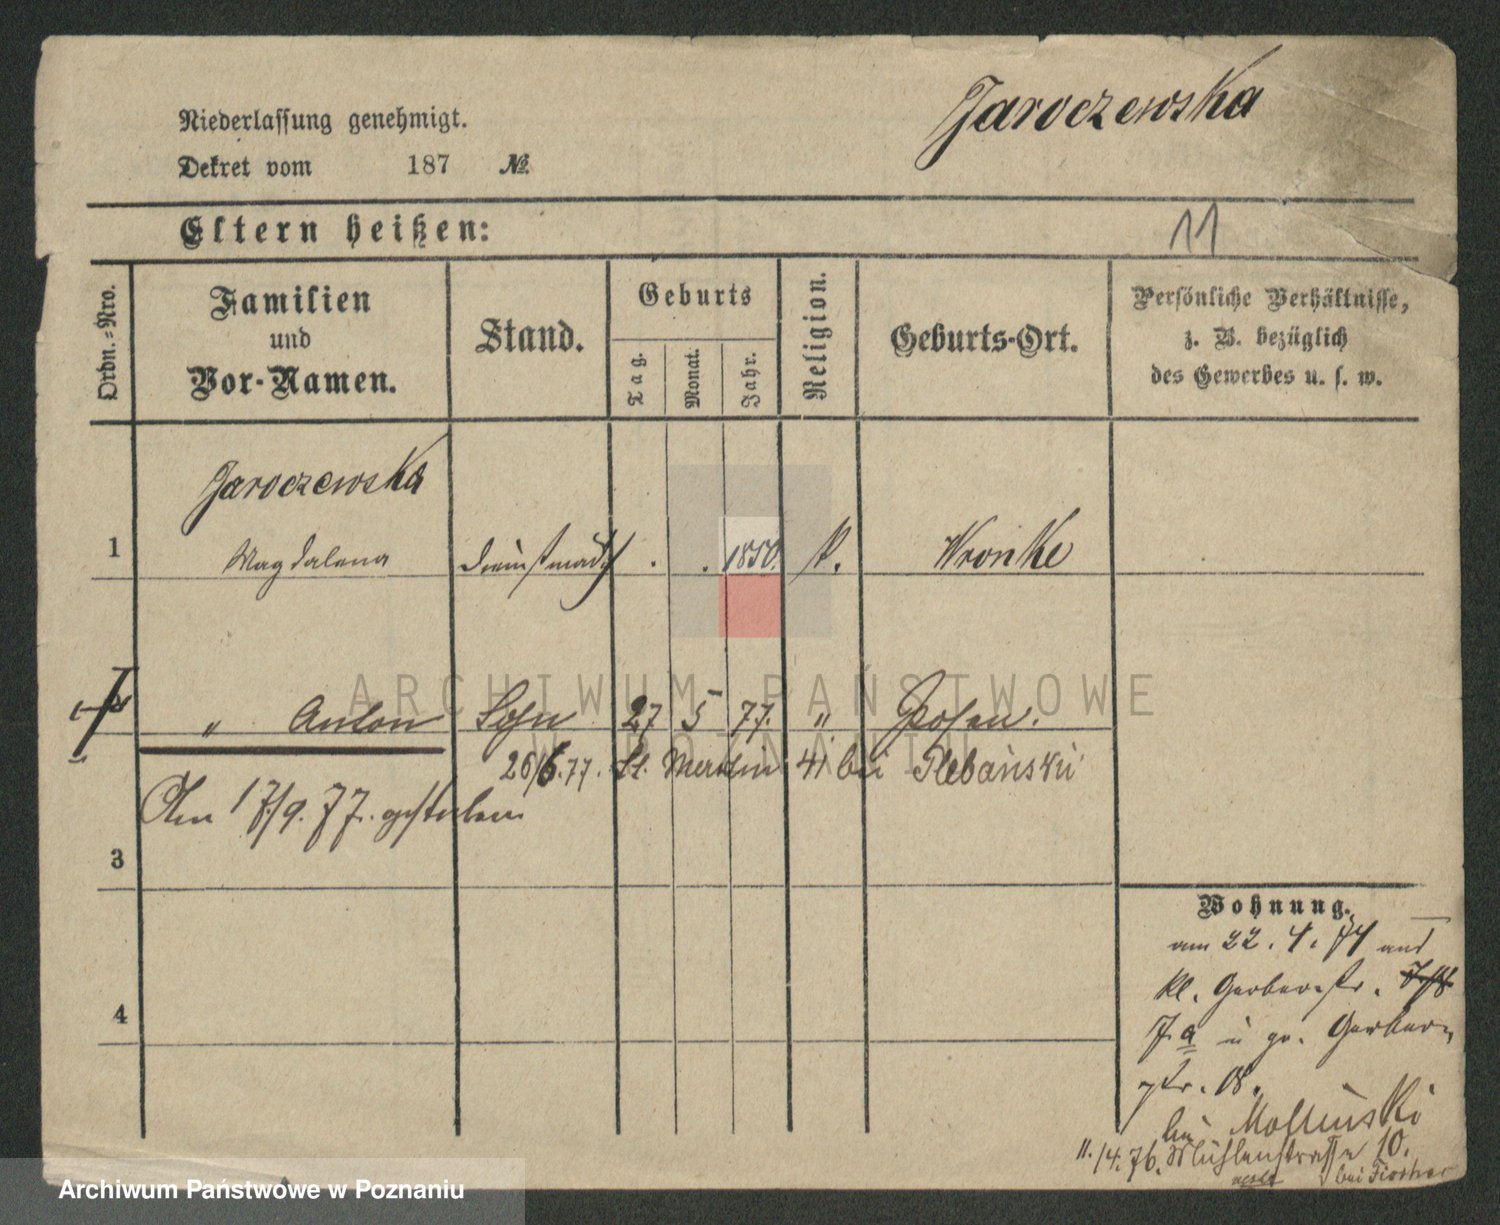 Jaroczewska
Niederlassung genehmigt.
Dekret vom 187 №.
Eltern heißen:
11
Ordn.-Nro.
Familien
und
Vor-Namen.
Stand.
Geburts
Tag.
Monat.
Jahr.
Religion.
Geburts-Ort.
Persönliche Verhältnisse,
z. B. bezüglich
des Gewerbes u. s. w.
Jaroczewska
1 Magdalena Dienstmädch . . 1850. k. Wronke
2 " Anton Sohn 27 5 77. " Posen.
26/6.77. St. Martin 41 bei Plebański
Am 17/9.77. gestorben
3
4
Wohnung.
am 22.4.74 aus
kl. Gerberstr.
7.a u gr. Gerber-
str. 18.
bei Mosinski
11./4.76. Mühlenstrasse 10.
bei Fischer
ARCHIWUM PAŃSTWOWE
W POZNANIU
Archiwum Państwowe w Poznaniu